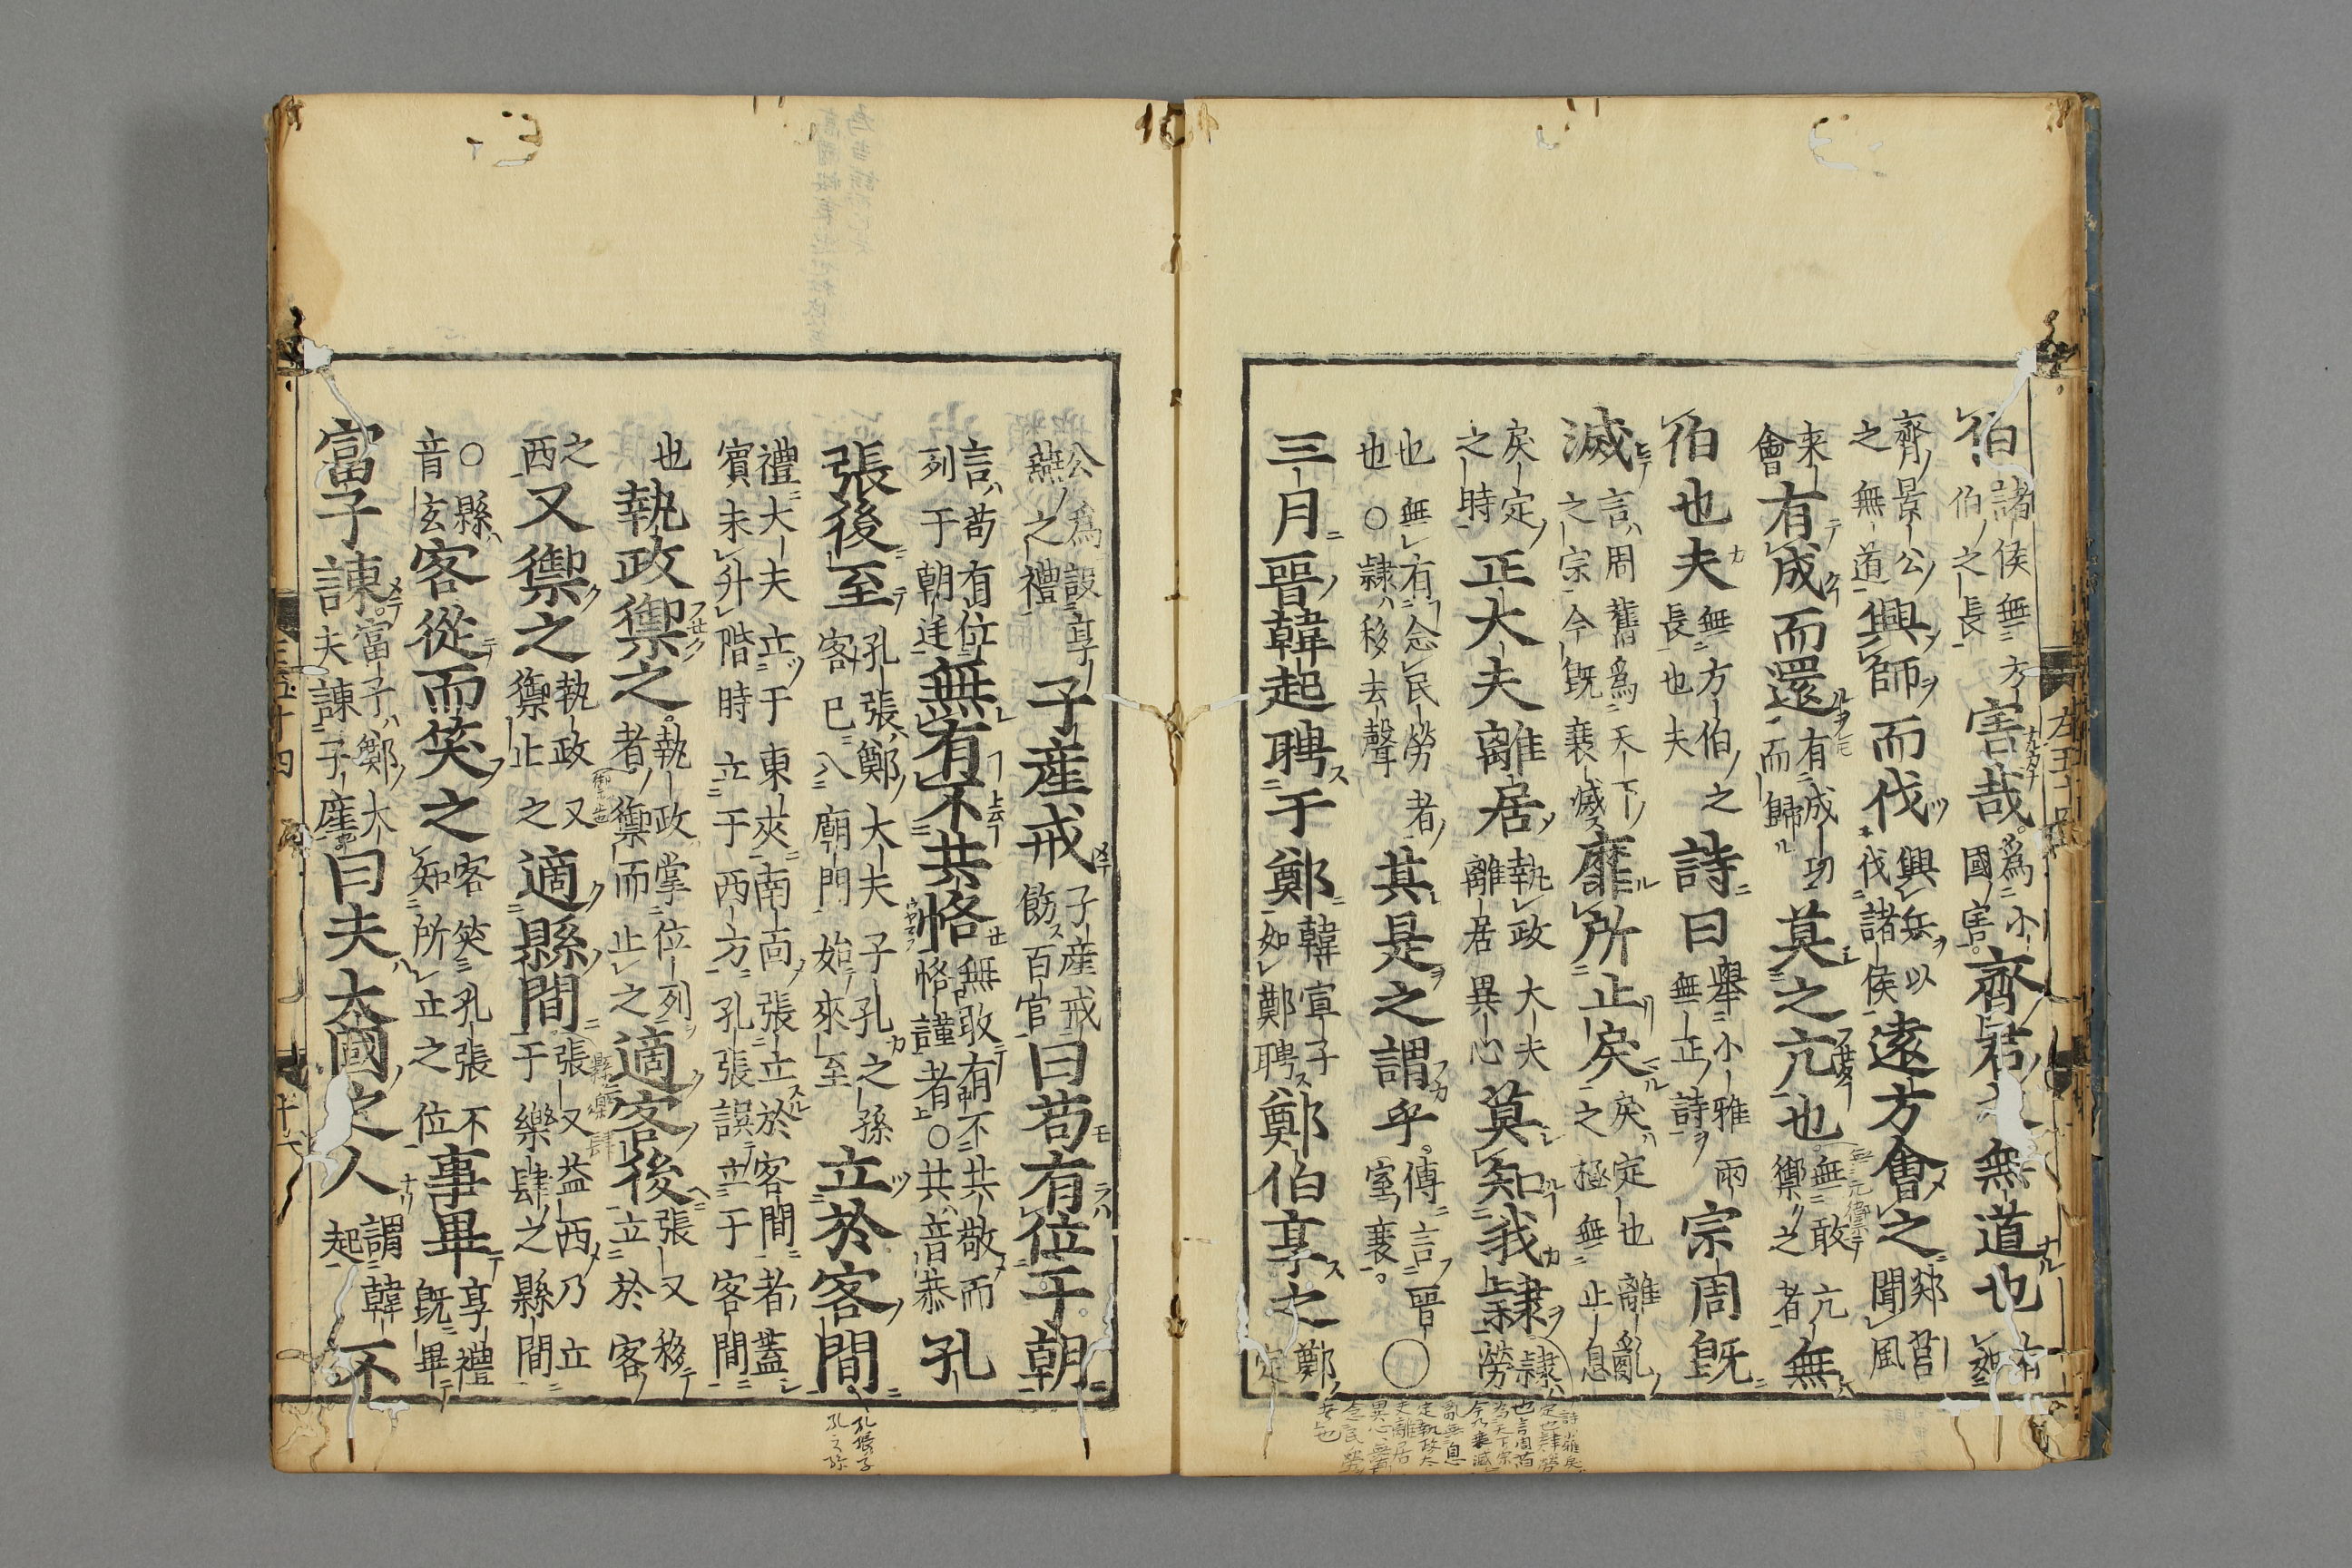 伯諸侯無方伯之長害哉爲小國害齊君無道也
齊景公之無道興師而伐興兵以伐諸侯遠方會之郯莒聞風
来會有成而還有成功而歸莫之亢也無敢亢禦之者無
伯也夫無方伯之長也夫詩曰舉小雅雨無正詩宗周旣
滅言周舊爲天下之宗今旣衰滅靡所止戾戾定也之極無止息離亂
戾定之時正大夫離居執政大夫離居異心莫知我勩
也無有念民勞者也○隸移去聲其是之謂乎傳言晉室衰○
三月晉韓起聘于鄭韓宣子如鄭聘鄭伯享之鄭定
公爲設享燕之禮子產戒子產戒飭百官曰苟有位于朝
言苟有位列于朝廷無有不共恪無敢有不共敬而恪謹者○共音恭孔
張後至孔張鄭大夫子孔之孫客已入廟門始來至立於客間
禮大夫立于東夾南面張立於客間者蓋賓未升階時立于西方孔張誤立于客間
也執政禦之執政掌位列者禦而止之適客後張又移立於客
之西又禦之執政又禦止之適縣間張又益西乃立于樂肆之縣間
○縣音玄客從而笑之客笑孔張不知所立之位事畢享禮旣畢
富子諫富子鄭大夫諫子產曰夫大國之人謂韓起不